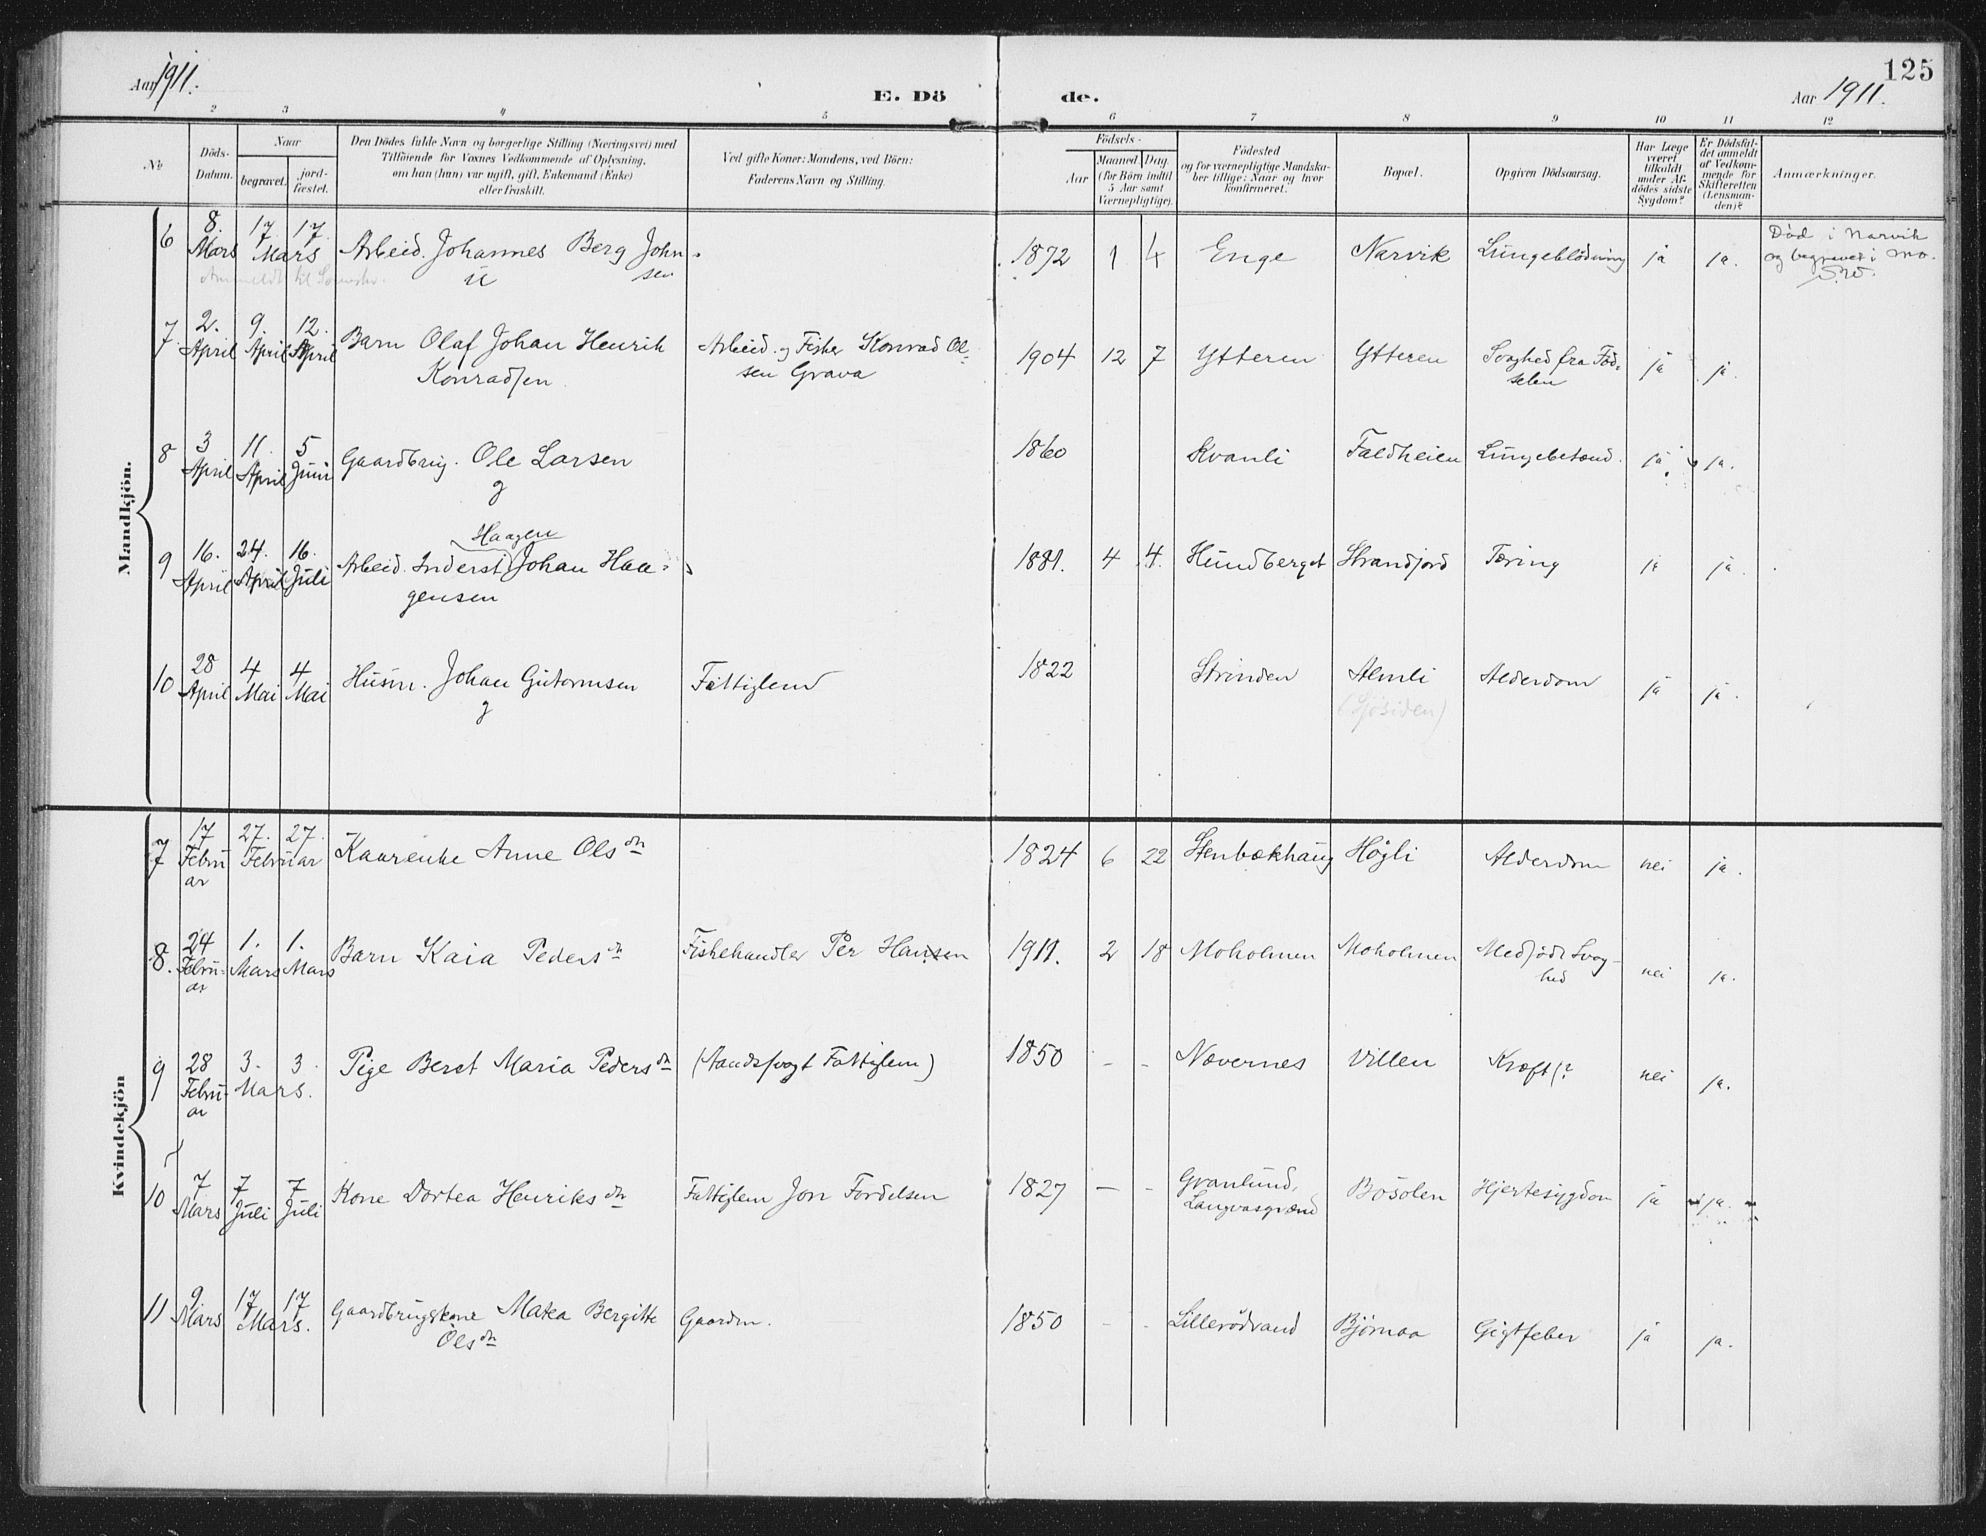 Aar 1911.
E. Dö
de.
Aar 1911.
125
2 3 4 5 6 7 8 9 10 11 12
No
Döds-
Datum.
Naar
begravet.
jord-
fæstet.
Den Dödes fulde Navn og borgerlige Stilling (Næringsvei) med
Tilföiende for Voxnes Vedkommende af Oplysning,
om han (hun) var ugift, gift, Enkemand (Enke)
eller fraskilt.
Ved gifte Koner: Mandens, ved Börn:
Faderens Navn og Stilling.
Födsels-
Aar
Maaned Dag.
(for Börn indtil
5 Aar samt
Værnepligtige).
Födested
og for værnepligtige Mandska-
ber tillige: Naar og hvor
konfirmeret.
Bopæl.
Opgiven Dödsaarsag.
Har Læge
været
tilkaldt
under Af-
dödes sidste
Sygdom?
Er Dödsfal-
det anmeldt
af Vedkom-
mende for
Skifteretten
(Lensman-
den)?
Anmærkninger.
Mandkjön.
6 8. Mars 17 17. Mars Arbeid. Johannes Berg John-
sen
u
1872 1 4 Enge Narvik Lungeblödning ja ja.
Død i Narvik
og begravet i Mo.
7 2. April 9. April 12. April Barn Olaf Johan Henrik
Konradsen
Arbeid. og Fisker Konrad Ol-
sen Grava
1904 12 7 Ytteren Ytteren Svaghed fra Fød-
selen
ja ja.
8 3 April 11. April 5 Juni Gaardbrug. Ole Larsen
g
1860 Kvanli Faldheien Lungebetænd. ja ja.
9 16. April 24. April 16. Juli Arbeid. Inderst Haagen
Johan Haa-
gensen
1881. 4 4. Hundberget Strandjord Tæring ja ja.
10 28 April 4 Mai 4 Mai Husm. Johan Gutormsen
g
Fattiglem
1822 Strinden Almli
(Sjøsiden)
Alderdom ja ja.
Kvindekjön
7 17 Febru-
ar
27. 27. Februar Kaurenke Anne Olsdn
1824 6 22 Stenbækhaug Høgli Alderdom nei ja.
8. 24 Febru-
ar
1. Mars 1. Mars Barn Kaia Pedersdn Fiskehandler Per Hansen
1911. 2 18 Moholmen Moholmen Medfødt Svag-
hed
nei ja.
9 28 Febru-
ar
3. 3. Mars. Pige Beret Maria Pedersdn (Aandssvagt Fattiglem)
1850 - - Nævernes Villen Kræft(? nei ja.
10 7 Mars 7 Juli 7 Juli Kone Dortea Henriksdn Fattiglem Jon Fordelsen
1827 - - Granlund,
Langvasgrænd
Bosolen Hjertesygdom ja ja.
11 9 Mars 17 17 Mars. Gaardbrugskone Matea Bergitte
Olsdn
Gaardm.
1850 - - Lillerödvand Bjørnaa Gigtfeber ja ja.